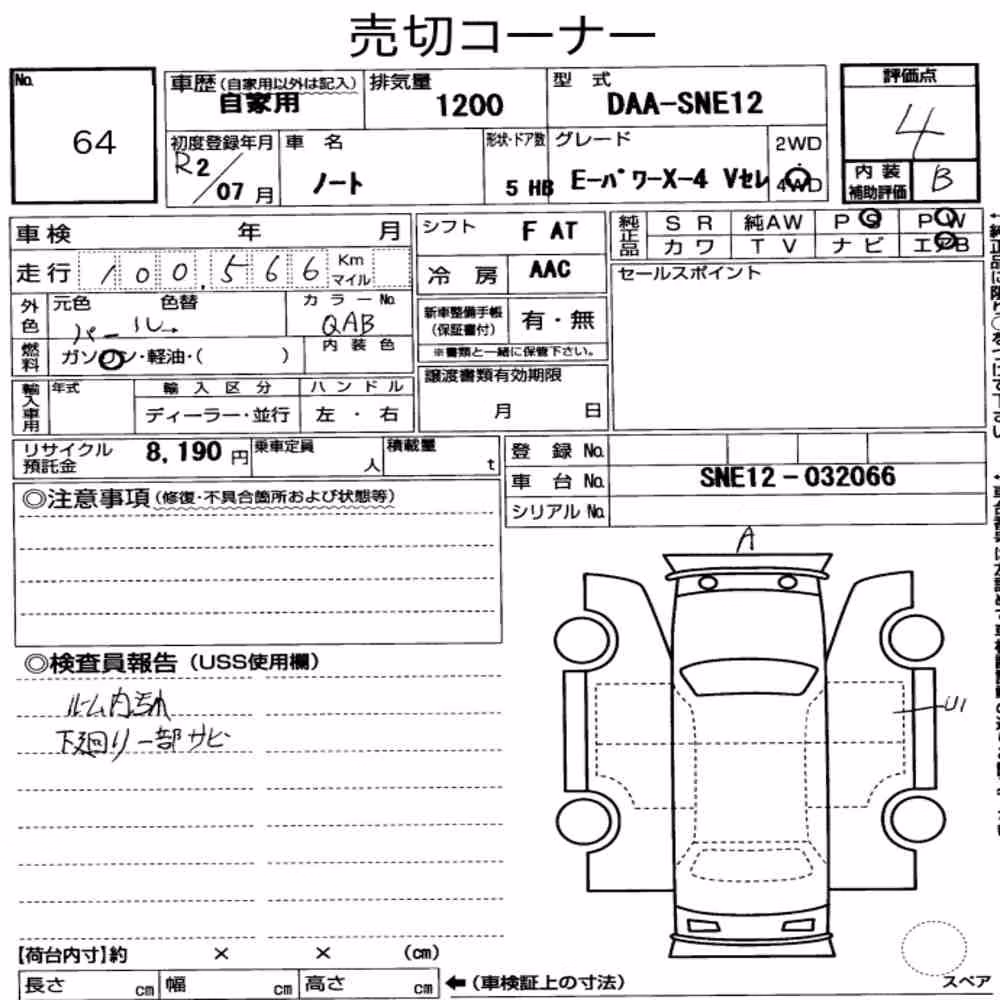 売切コーナー
No.
64
車歴(自家用以外は記入)
自家用
排気量
1200
型 式
DAA-SNE12
評価点
4
初度登録年月
R2/07月
車 名
ノート
形状・ドア数
5 HB
グレード
E-パワーX-4 Vセレ
2WD
4WD
内装補助評価
B
車検 年 月
走行 100,566 Km
マイル
シフト
F AT
冷房
AAC
純正品
SR 純AW PS PW
カワ TV ナビ エアB
セールスポイント
外色
元色 色替
パール
カラーNo.
QAB
新車整備手帳
(保証書付)
有・無
※書類と一緒に保管下さい。
燃料
ガソリン・軽油・( )
内装色
輸入車用
年式
輸入区分
ディーラー・並行
ハンドル
左・右
譲渡書類有効期限
月 日
リサイクル
預託金
8,190円
乗車定員
人
積載量
t
登録No.
車台No.
SNE12-032066
シリアルNo.
◎注意事項(修復・不具合箇所および状態等)
A
◎検査員報告(USS使用欄)
ルーム内汚れ
下廻り一部サビ
U1
【荷台内寸】約 × × (cm)
長さ cm 幅 cm 高さ cm
←(車検証上の寸法)
スペア